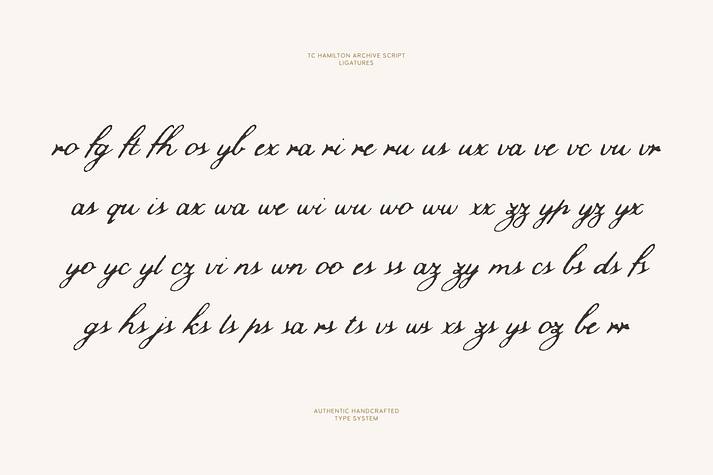 TC HAMILTON ARCHIVE SCRIPT
LIGATURES
ro fg ft fh os yb ex ra ri re ru us ux va ve vc vu vr
as qu is ax wa we wi wu wo ww xx zz yp yz yx
yo yc yl cz vi ns wn oo es ss az zy ms cs bs ds fs
gs hs js ks ls ps sa rs ts vs ws xs zs ys oz be rr
AUTHENTIC HANDCRAFTED
TYPE SYSTEM